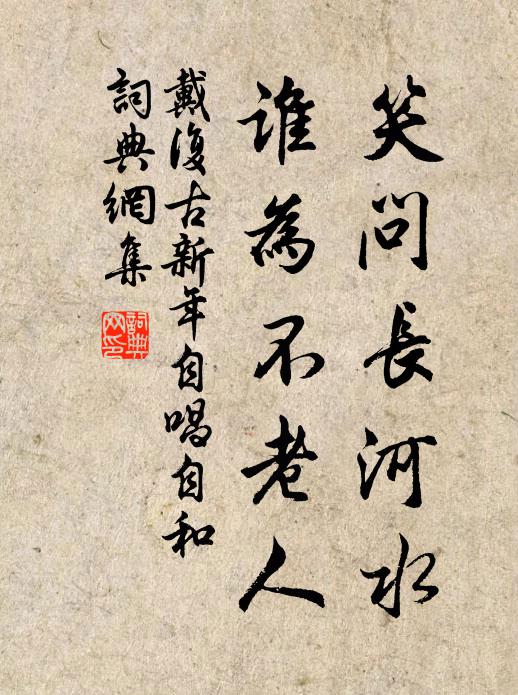 笑問長河水
誰為不老人
戴復古新年自唱自和
詞典網集
詞典网印